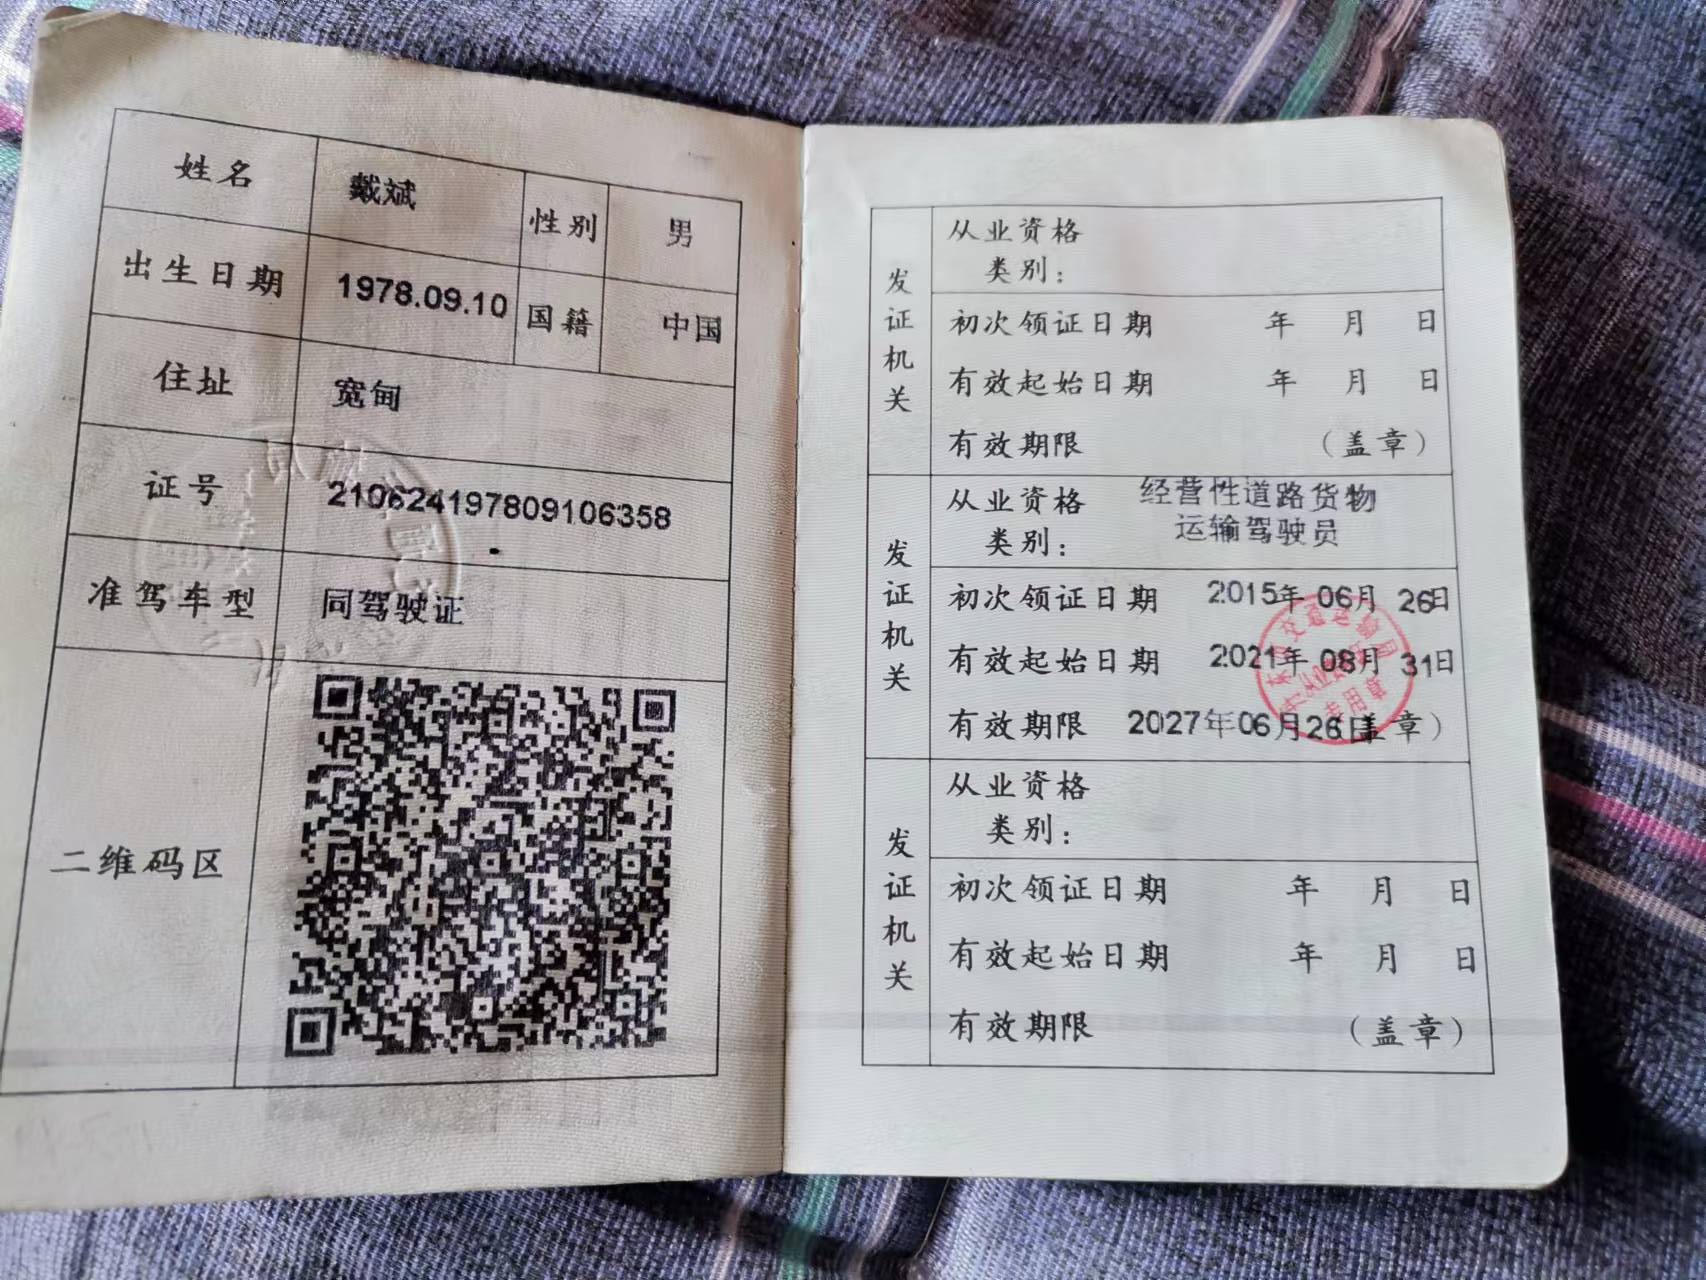 姓名 戴斌 性别 男
出生日期 1978.09.10 国籍 中国
住址 宽甸
证号 210624197809106358
准驾车型 同驾驶证
二维码区
发证机关
从业资格
类别：
初次领证日期 年 月 日
有效起始日期 年 月 日
有效期限 （盖章）
发证机关
从业资格 经营性道路货物
类别： 运输驾驶员
初次领证日期 2015年 06月 26日
有效起始日期 2021年 08月 31日
有效期限 2027年06月26日（盖章）
交通运输局
专用章
发证机关
从业资格
类别：
初次领证日期 年 月 日
有效起始日期 年 月 日
有效期限 （盖章）